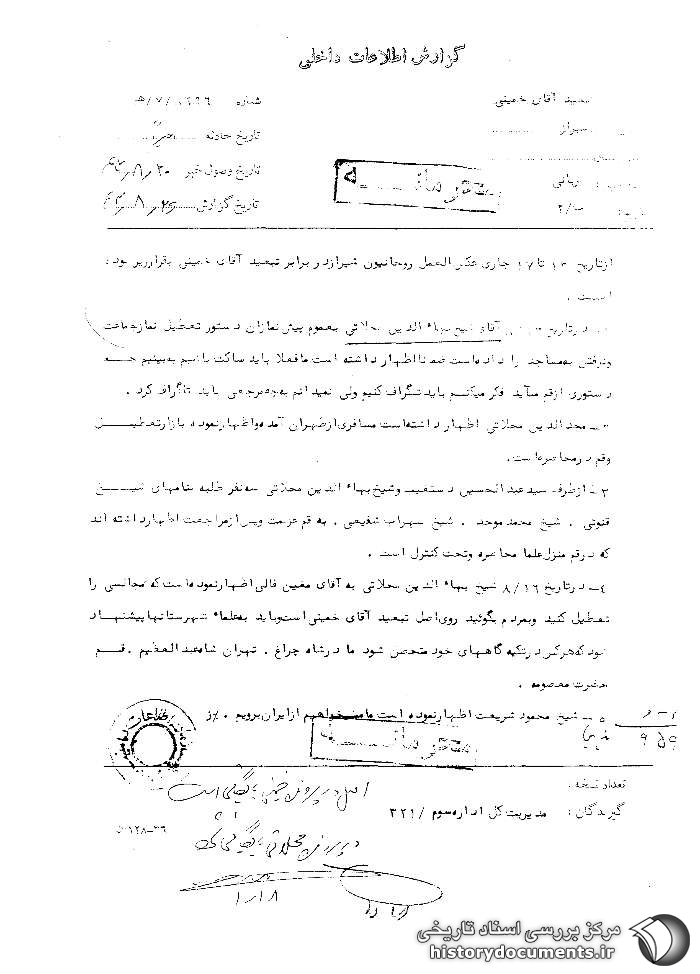 گزارش اطلاعات داخلی
تبعید آقای خمینی
شماره ۱۲۹۶/۷/ ه‍
شیراز
تاریخ حادثه
تاریخ وصول خبر ۴۳/۸/۲۰
تاریخ گزارش ۴۳/۸/۲۵
محرمانه
ازتاریخ ۱۳ تا ۱۷ جاری عکس العمل روحانیون شیرازدر برابر تبعید آقای خمینی بقرارزیر بوده
است .
درتاریخ آقای شیخ بهاء الدین محلاتی بعموم پیش نمازان دستور تعطیل نمازجماعت
ونرفتن بمساجد را داده است ضمنا اظهار داشته است ما فعلا باید ساکت باشیم به بینیم چه
دستوری ازقم میآید فکر میکنم باید تلگراف کنیم ولی نمیدانم بچه مرجعی باید تلگراف کرد .
۲ـ مجدالدین محلاتی اظهار داشته است مسافری ازطهران آمده واظهارنموده بازارتعطیل
وقم درمحاصره است.
۳ـ ازطرف سیدعبدالحسین دستغیب وشیخ بهاء الدین محلاتی سه نفر طلبه بنامهای شیخ
قنوتی . شیخ محمد موحد . شیخ سهراب شفیعی . به قم عزیمت وپس ازمراجعت اظهارداشته اند
که درقم منزل علما محاصره وتحت کنترل است .
۴ـ درتاریخ ۸/۱۶ شیخ بهاء الدین محلاتی به آقای معین فالی اظهارنموده است که مجالس را
تعطیل کنید وبمردم بگوئید روی اصل تبعید آقای خمینی است وباید به علماء شهرستانها پیشنهاد
نمود که هرکس درتکیه گاههای خود متحصن شود ما درشاه چراغ . تهران شاه عبدالعظیم . قم
حضرت معصومه .
۵ـ شیخ محمود شریعت اظهارنموده است ما میخواهیم ازایران برویم .
محرمانه
تعداد نسخه :
گیرندگان : مدیریت کل اداره سوم / ۳۲۱
اصل در پرونده خمینی بایگانی است
در پرونده محلاتی بایگانی
۲۸ـ۳۶
مرکز بررسی اسناد تاریخی
historydocuments.ir